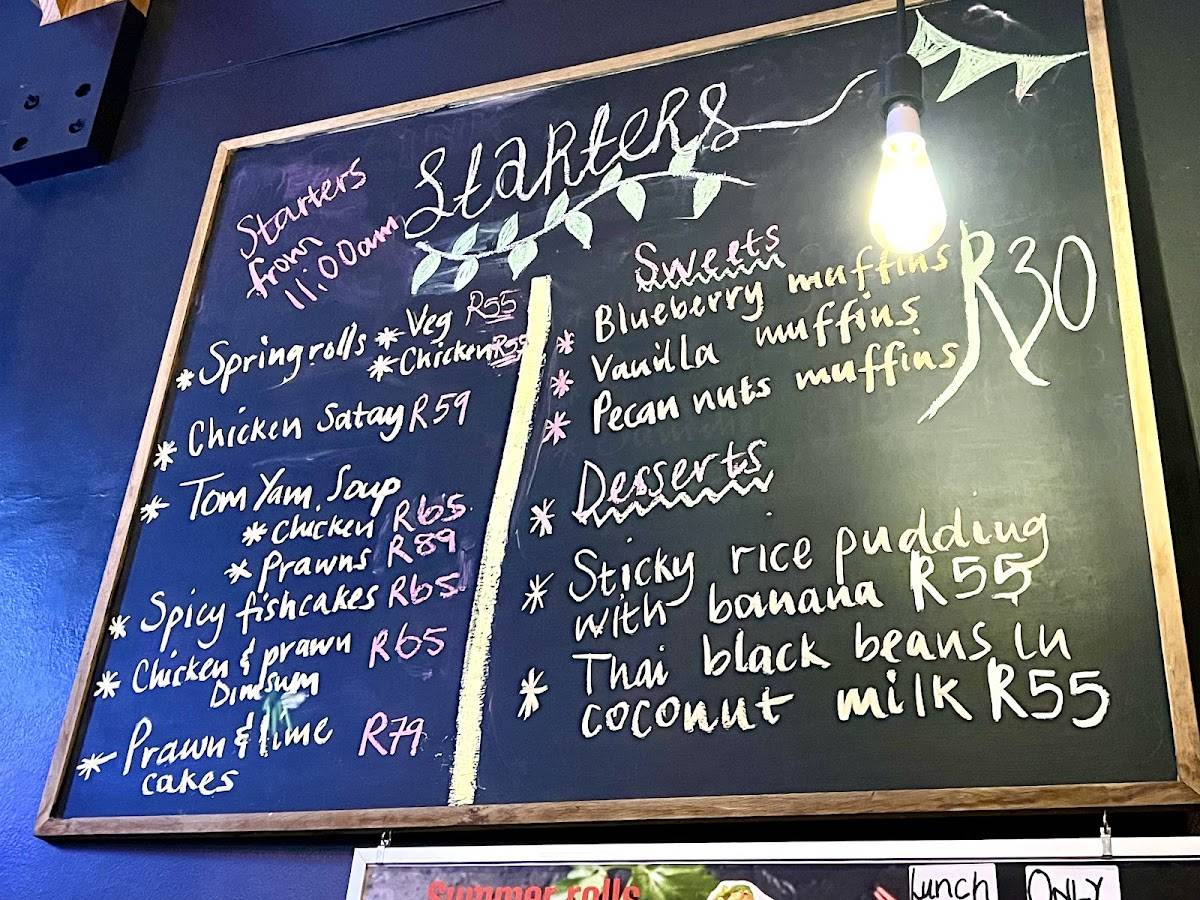 Starters
Starters
from
11:00am
* Springrolls * Veg R55
* Chicken R55
* Chicken Satay R59
* Tom Yam Soup
* chicken R65
* Prawns R89
* Spicy fishcakes R65
* Chicken & prawn R65
Dimsum
* Prawn & lime R79
cakes
Sweets
* Blueberry muffins
* Vanilla muffins R30
* Pecan nuts muffins
* Desserts
* Sticky rice pudding
with banana R55
* Thai black beans in
coconut milk R55
Summer rolls
Lunch
ONLY